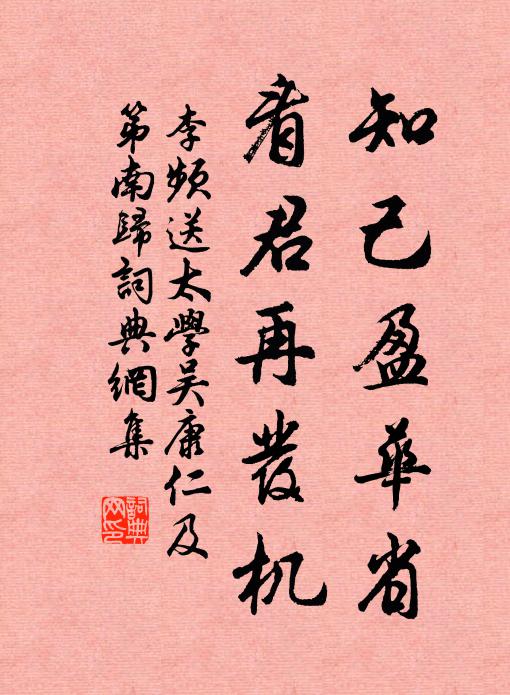 知己盈華省
看君再發机
李頻送太學吴康仁及
第南歸詞典網集
詞典
网印